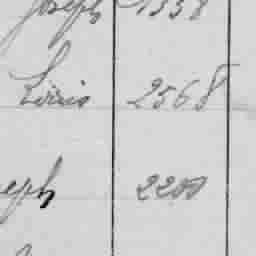 Joseph 1558
Louis 2568
eph 2200